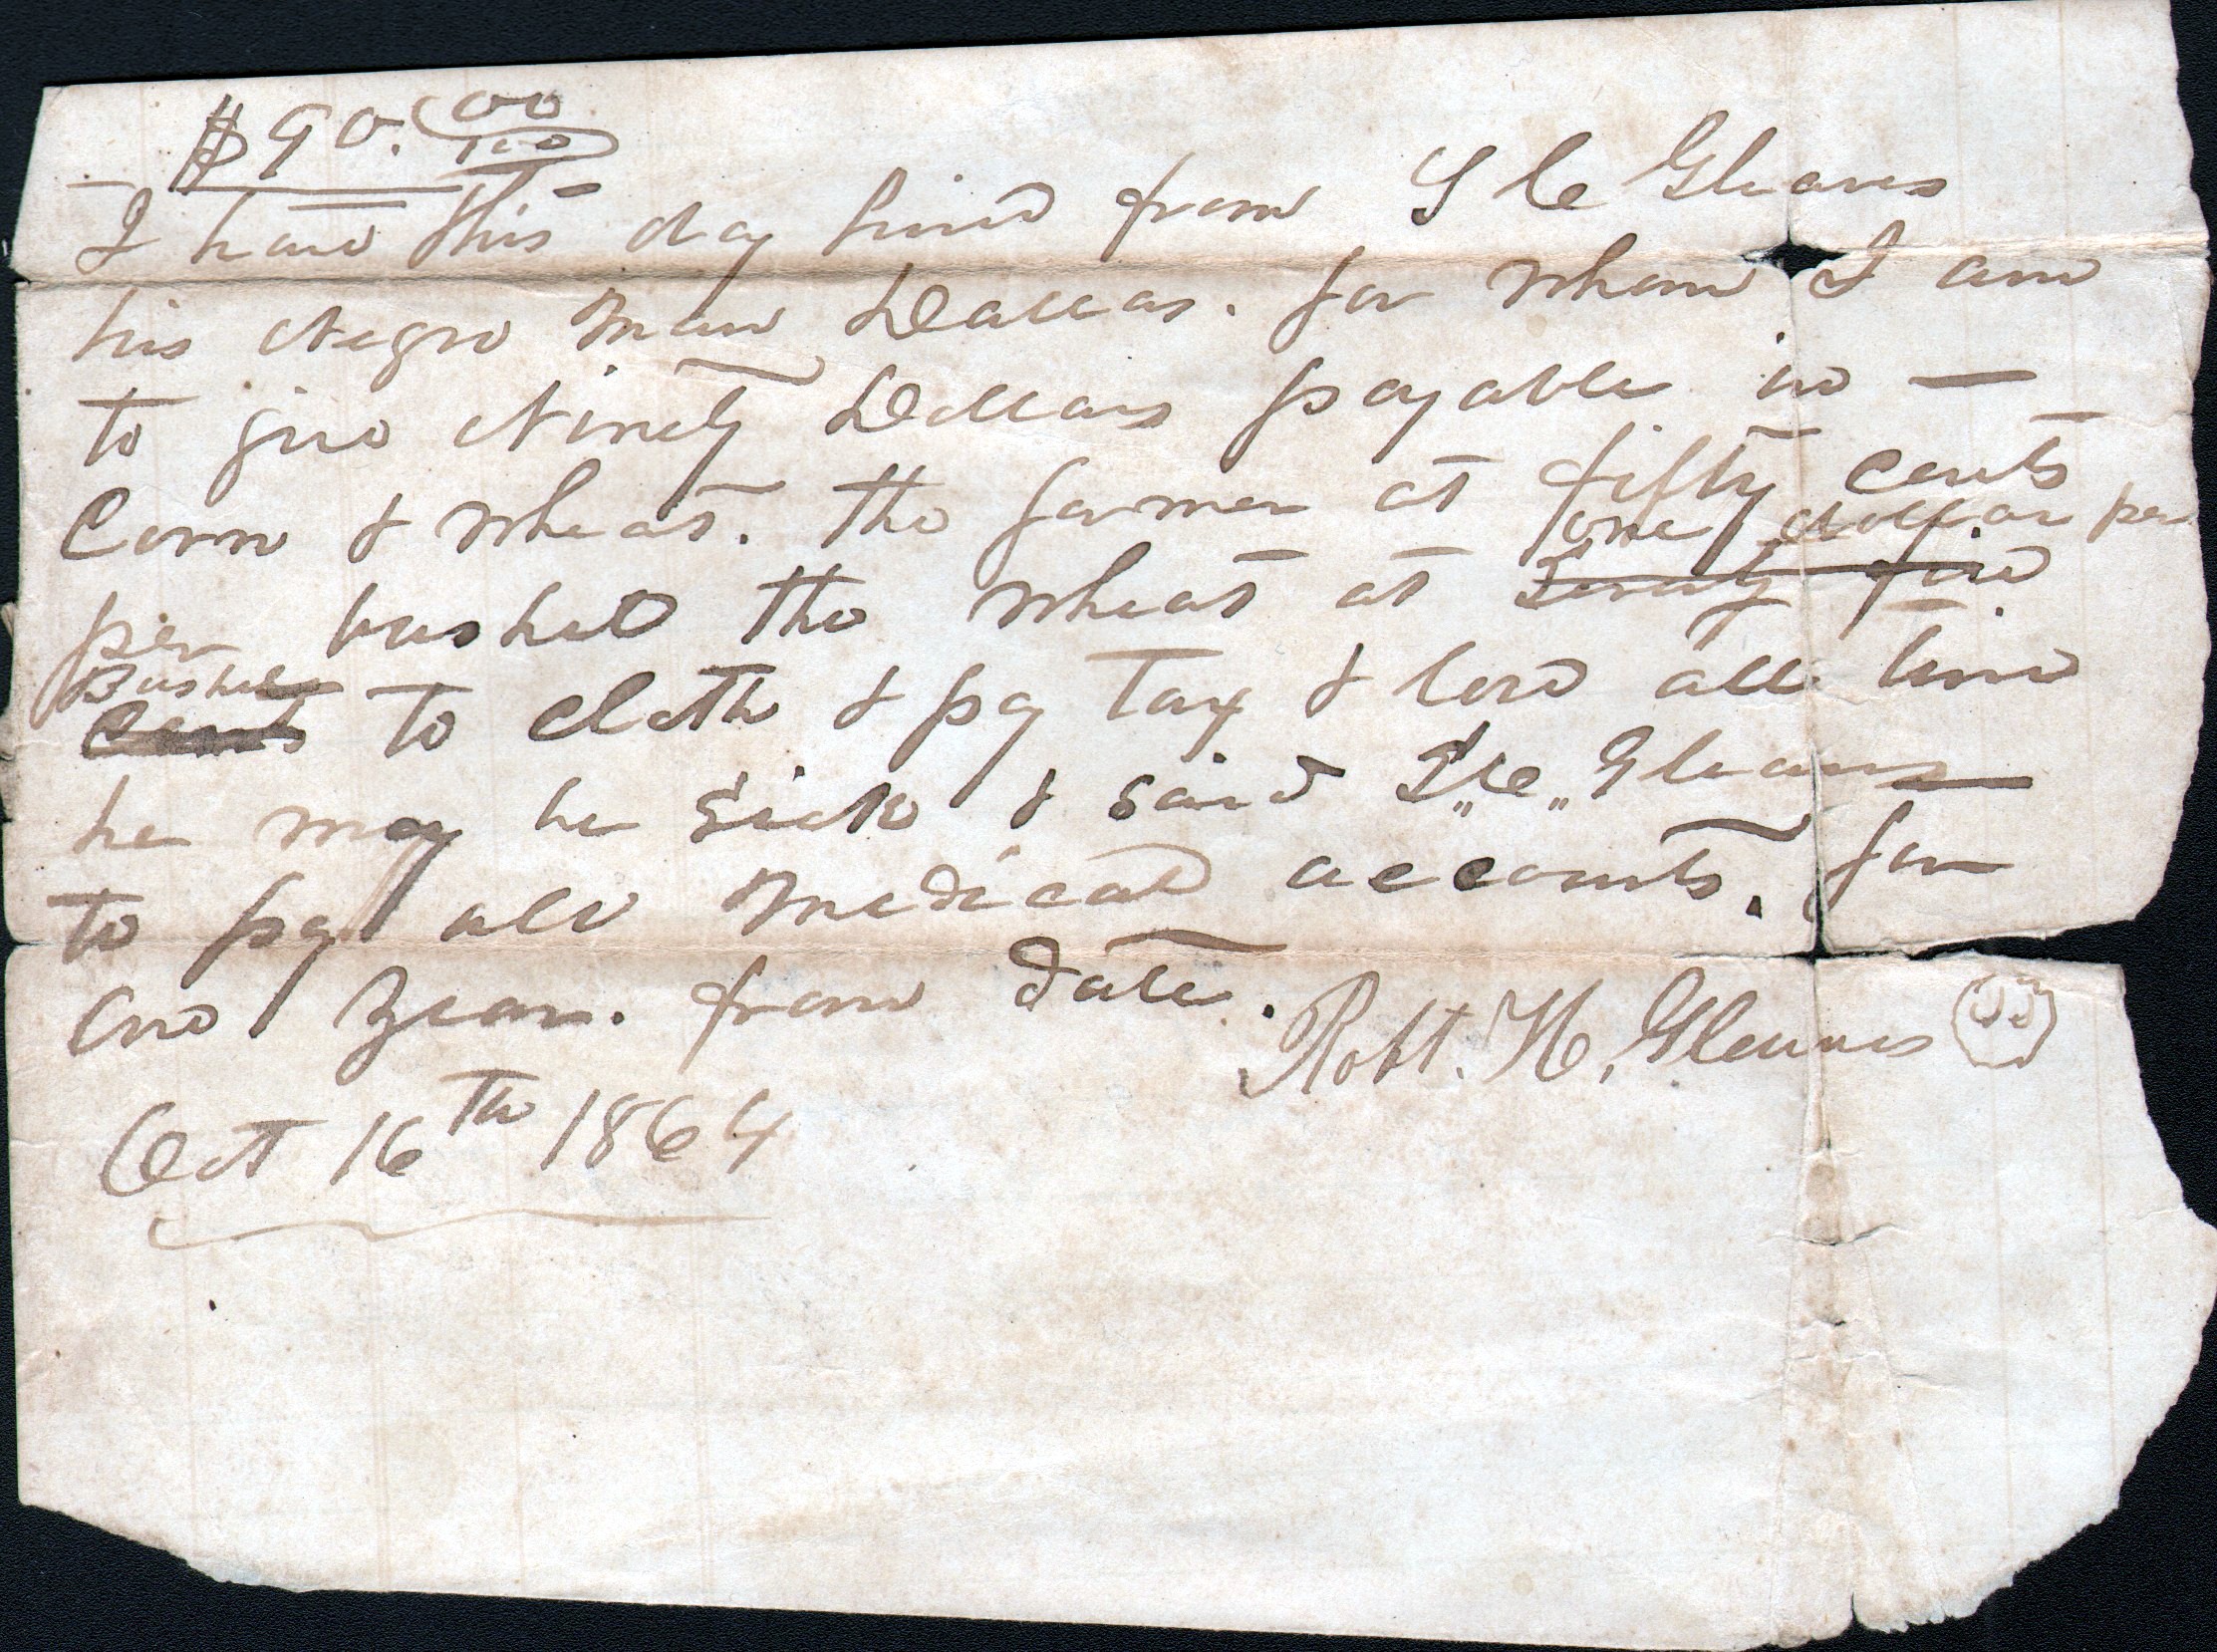 $90.00/100
I have this day hired from S C Gleaves
his Negro man Dallas. for whom I am
to give Ninety Dollars payable in —
Corn & wheat. the former at fifty cents
one dollar per
per bushel the wheat at Seventy five
Bushel
Cents to cloth & pay Tax & lose all time
he may be sick & said S"C" Gleaves
to pay all medical accounts. for
one year. from date.
Robt. H. Gleaves
Oct 16th 1864